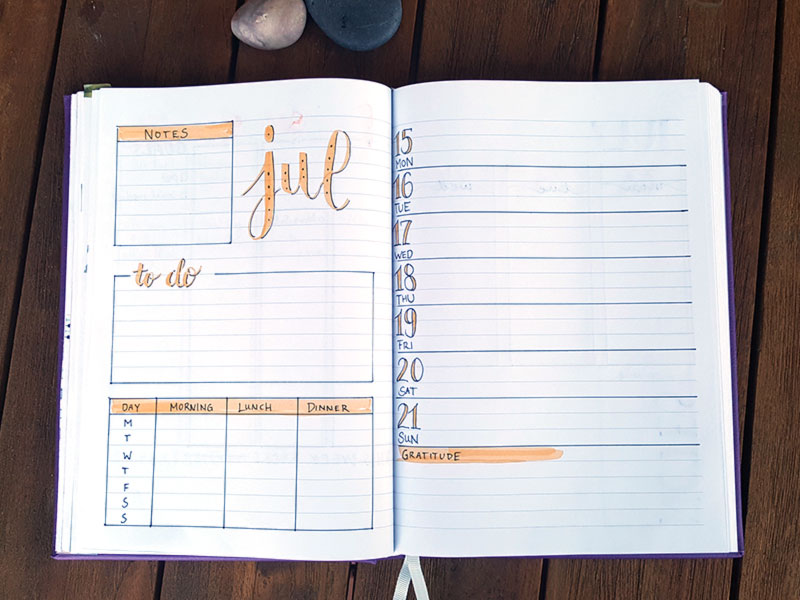 NOTES
jul
to do
DAY MORNING LUNCH DINNER
M
T
W
T
F
S
S
15
MON
16
TUE
17
WED
18
THU
19
FRI
20
SAT
21
SUN
GRATITUDE